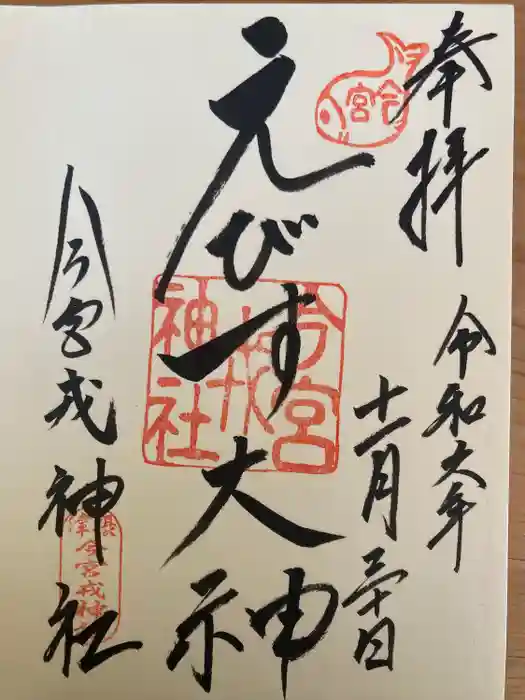 奉拝
令和六年
十一月三十日
今宮
えびす大神
今宮
戎
神社
今宮戎神社
摂津
今宮戎神社